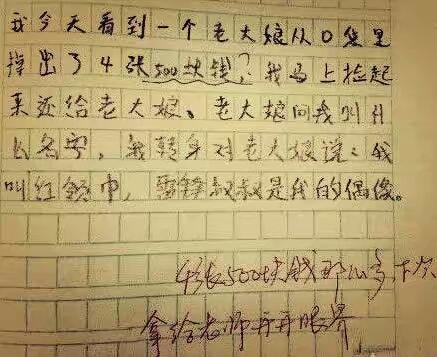 我今天看到一个老大娘从口袋里
掉出了4张500块钱,?我马上捡起
来还给老大娘、老大娘问我叫什
么名字,我转身对老大娘说:我
叫红领巾,雷锋叔叔是我的偶像。
4张500块钱那么多下次
拿给老师开开眼界